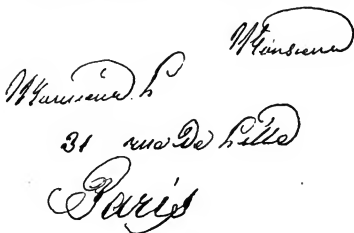 Monsieur
Monsieur L
31 rue De Lille
Paris